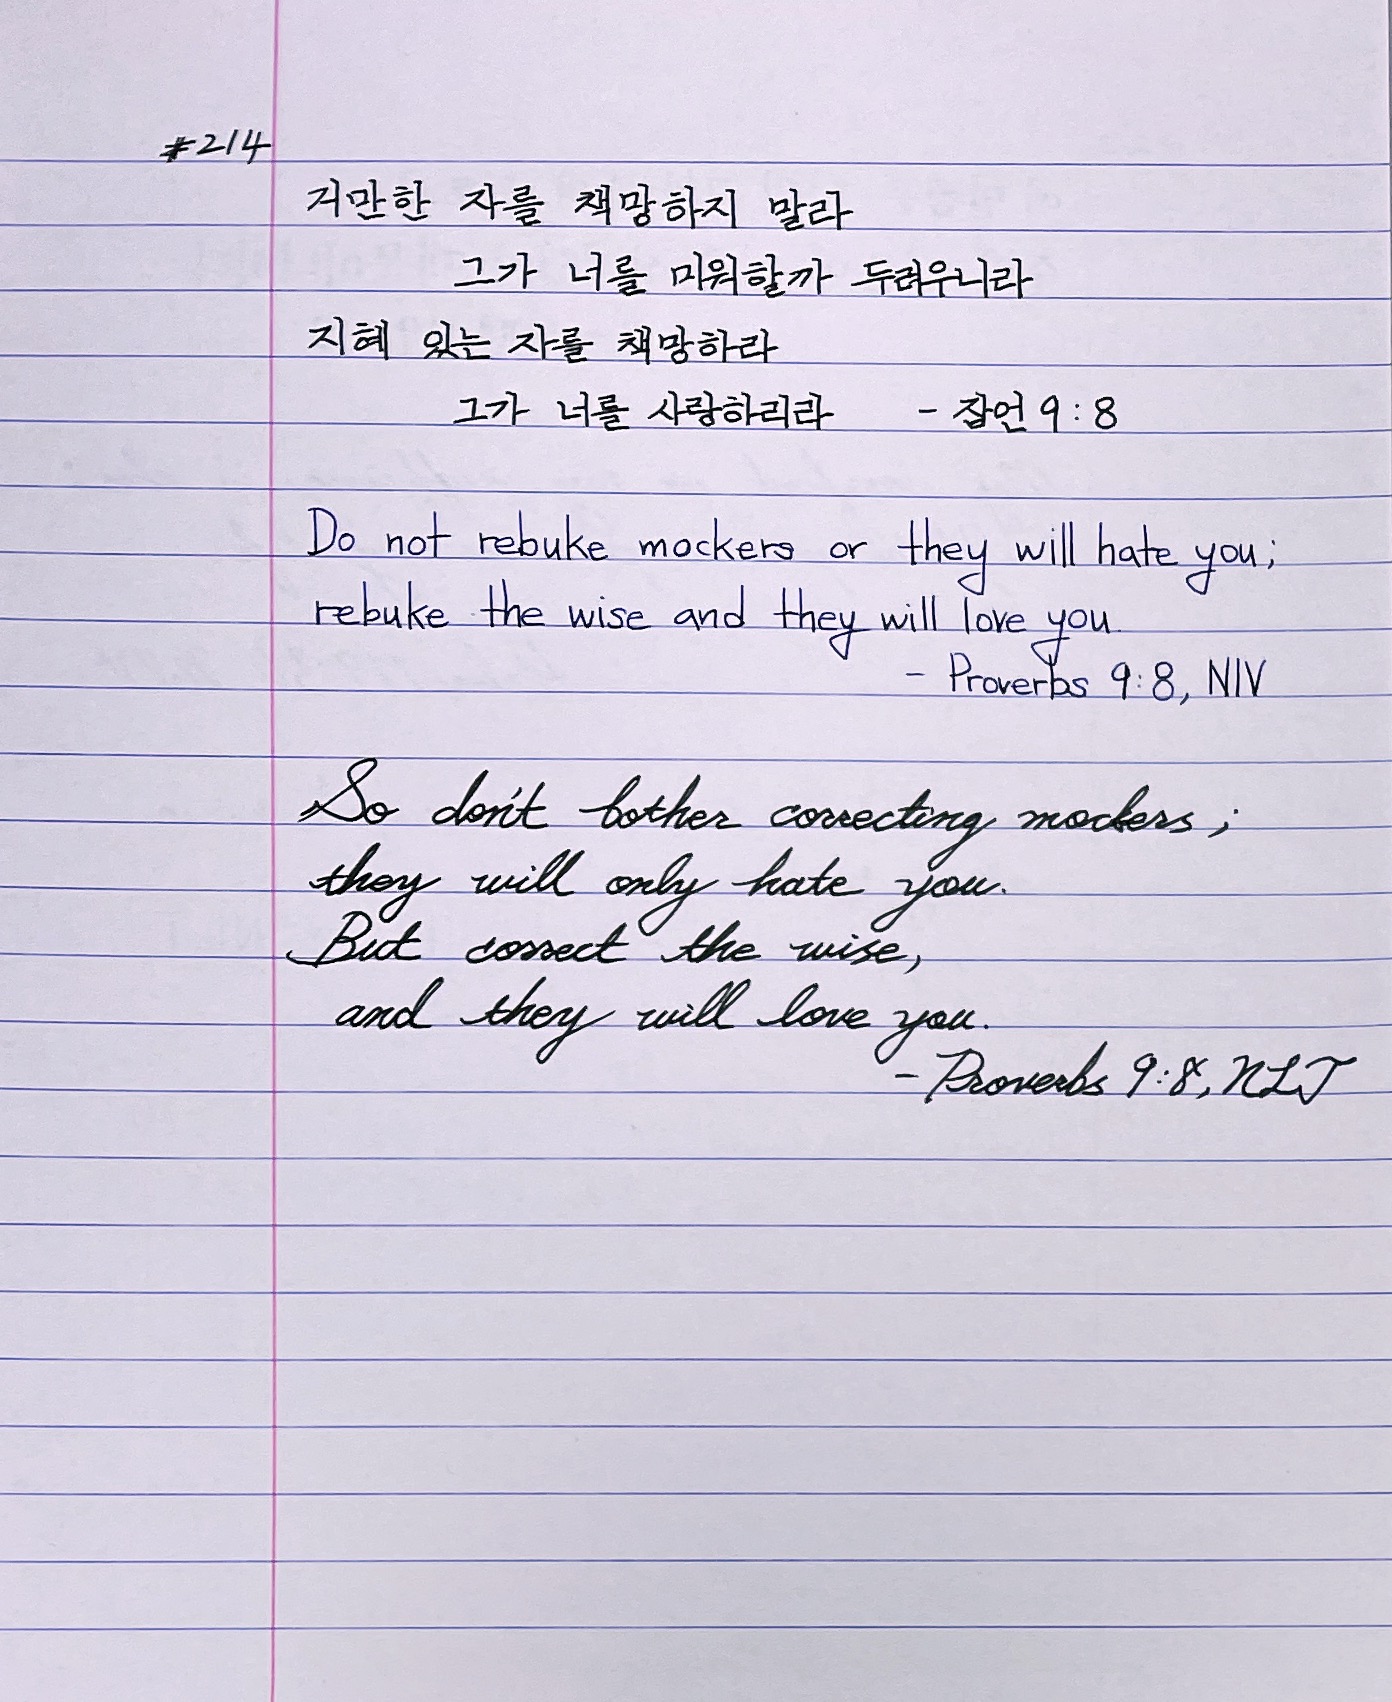 #214
거만한 자를 책망하지 말라
그가 너를 미워할까 두려우니라
지혜 있는 자를 책망하라
그가 너를 사랑하리라 - 잠언 9:8
Do not rebuke mockers or they will hate you;
rebuke the wise and they will love you.
- Proverbs 9:8, NIV
So don't bother correcting mockers;
they will only hate you.
But correct the wise,
and they will love you.
- Proverbs 9:8, NLT